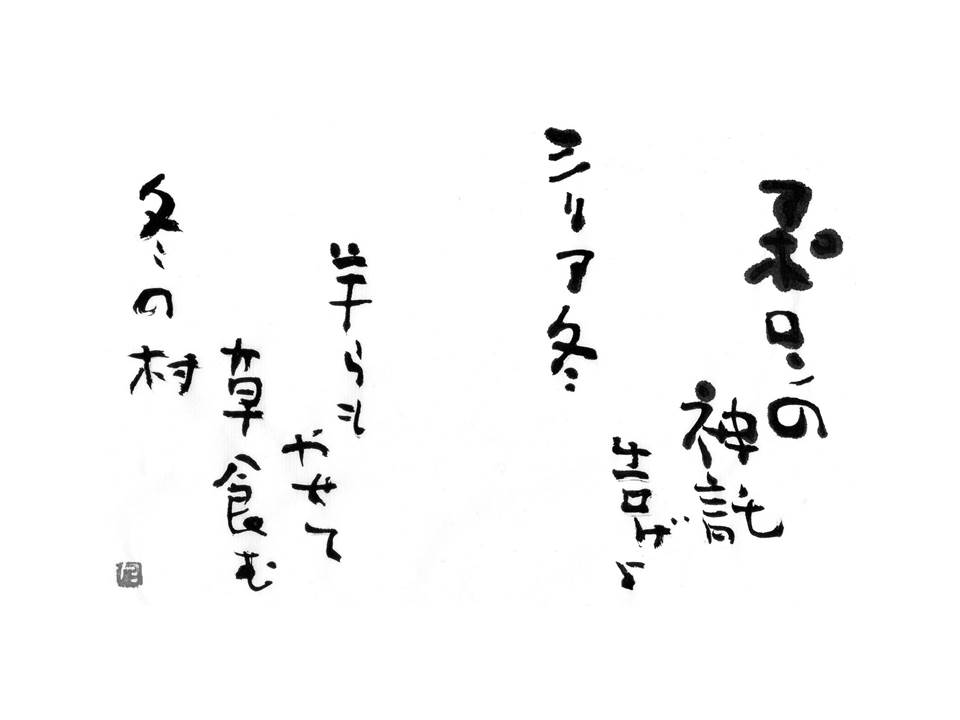 アポロンの
神託
告げよ
シリア冬
羊らも
やせて
草食む
冬の村